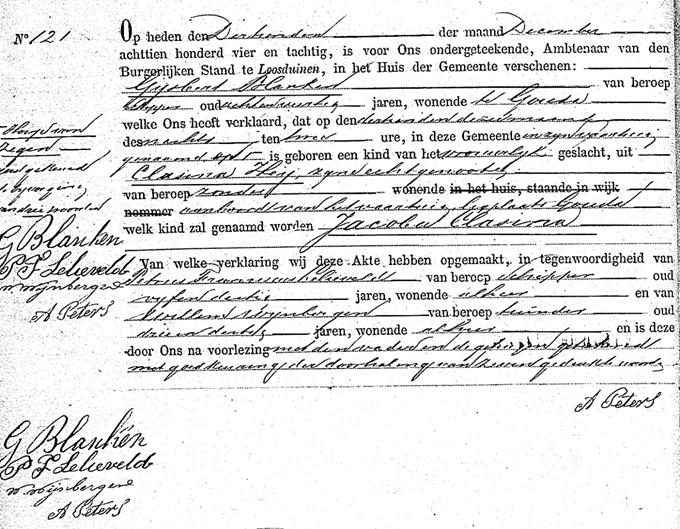 No 121
Op heden den Dertienden der maand December
achttien honderd vier en tachtig, is voor Ons ondergeteekende, Ambtenaar van den
Burgerlijken Stand te Loosduinen, in het Huis der Gemeente verschenen:
Gijsbert Blanken van beroep
schipper oud jaren, wonende te Gouda
welke Ons heeft verklaard, dat op den dertienden dezer maand
des nachts ten twee ure, in deze Gemeente in zijn vaartuig
genaamd is geboren een kind van het vrouwelijk geslacht, uit
Clasina Heij, zijne echtgenoote,
van beroep zonder wonende in het huis, staande in wijk
nommer aan boord van het vaartuig ligplaats Gouda
welk kind zal genaamd worden Jacoba Clasina
Van welke verklaring wij deze Akte hebben opgemaakt, in tegenwoordigheid van
Petrus Franciscus Lelieveldt van beroep schipper oud
vijfendertig jaren, wonende alhier en van
Willem Wijnbergen van beroep tuinder oud
drieendertig jaren, wonende alhier en is deze
door Ons na voorlezing met den vader en de getuigen geteekend
met goedkeuring der doorhaling van zeven gedrukte woorden
A Peters
G Blanken
P F Lelieveld
W Wijnbergen
A Peters
G Blanken
P F Lelieveld
W Wijnbergen
A Peters